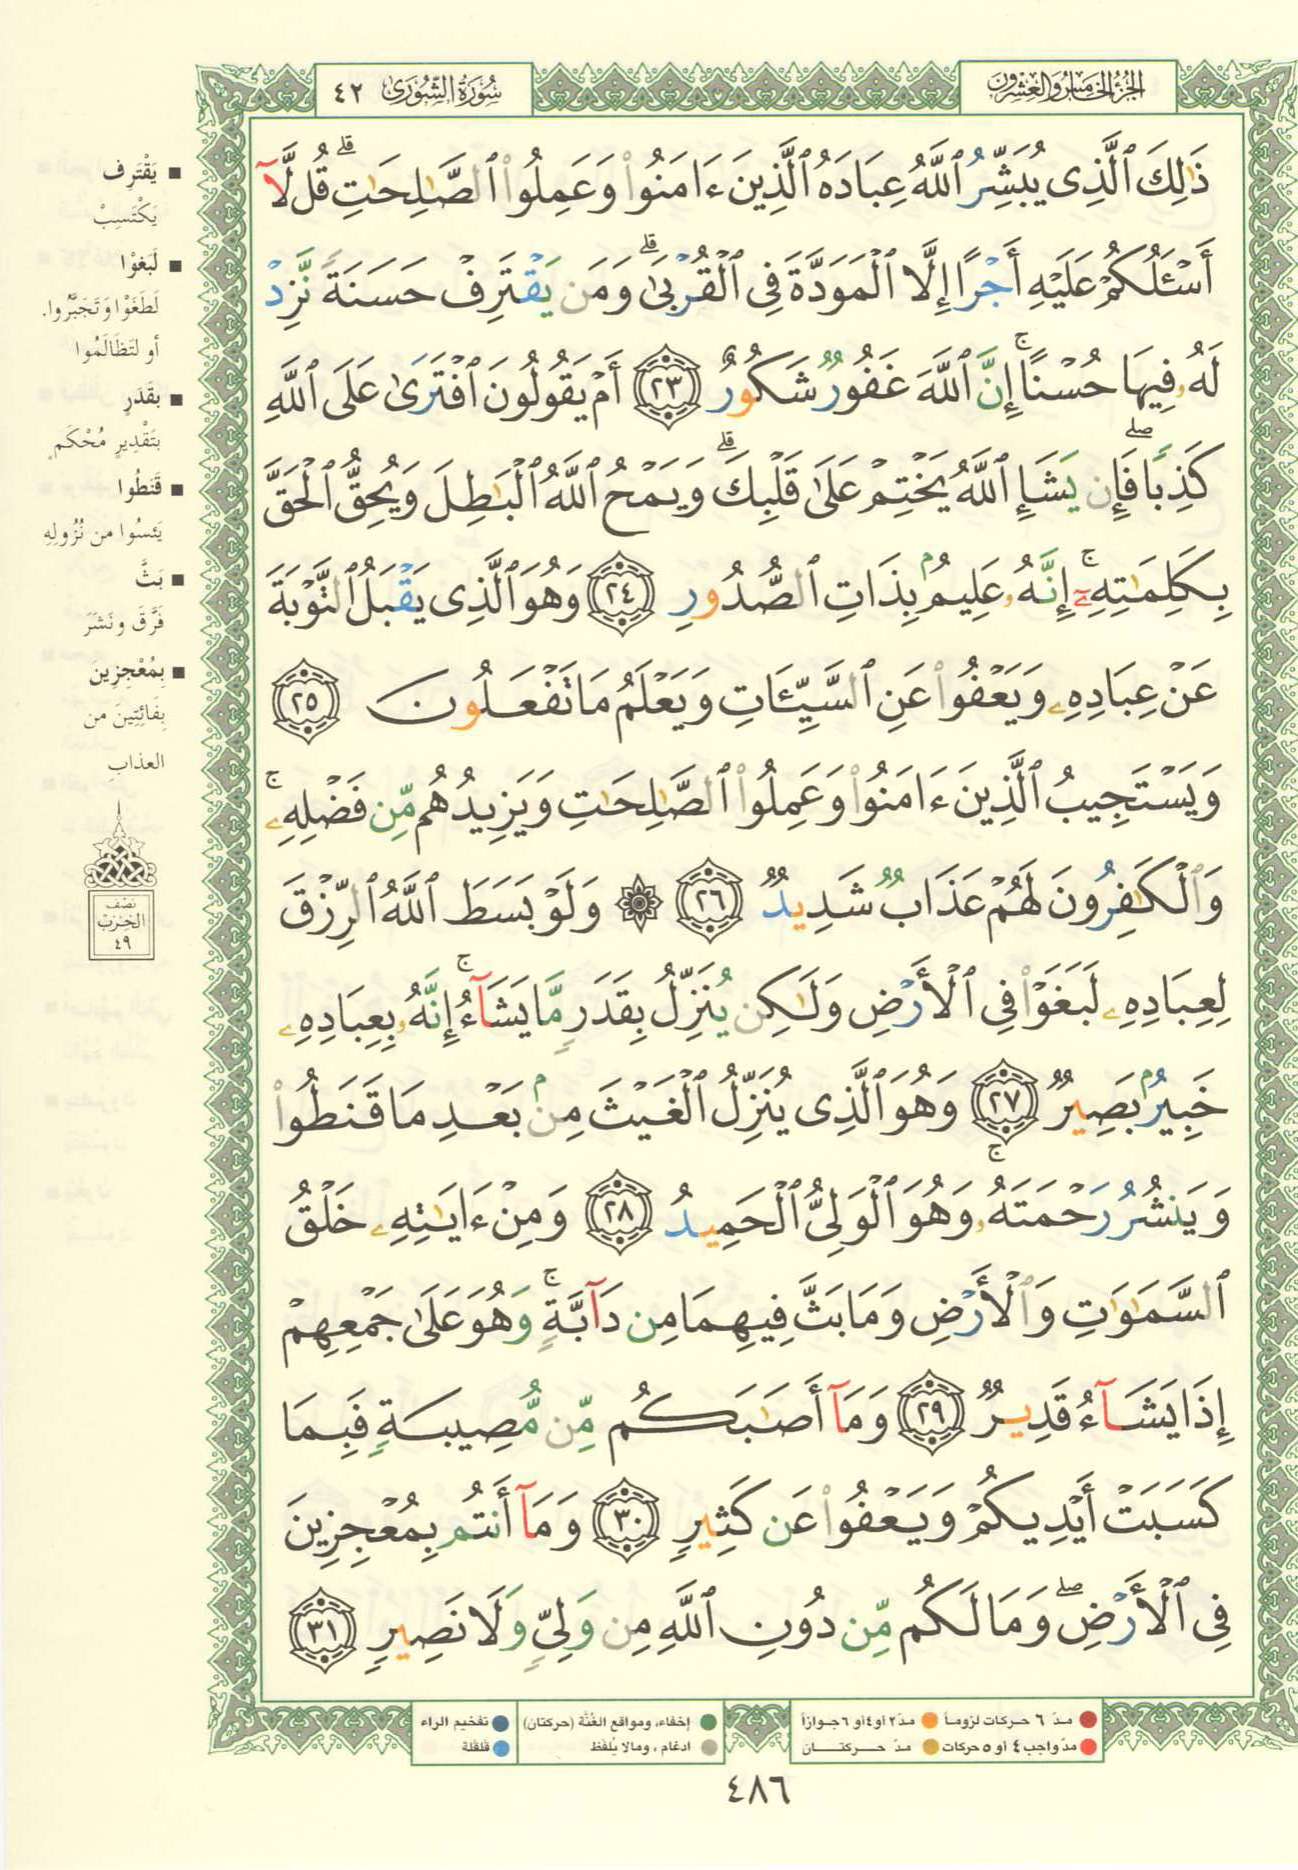 الجزء الخامس والعشرون
سورة الشورى ٤٢
ذَٰلِكَ ٱلَّذِى يُبَشِّرُ ٱللَّهُ عِبَادَهُ ٱلَّذِينَ ءَامَنُوا۟ وَعَمِلُوا۟ ٱلصَّـٰلِحَـٰتِ ۗ قُل لَّآ
أَسْـَٔلُكُمْ عَلَيْهِ أَجْرًا إِلَّا ٱلْمَوَدَّةَ فِى ٱلْقُرْبَىٰ ۗ وَمَن يَقْتَرِفْ حَسَنَةً نَّزِدْ
لَهُۥ فِيهَا حُسْنًا ۚ إِنَّ ٱللَّهَ غَفُورٌ شَكُورٌ ﴿٢٣﴾ أَمْ يَقُولُونَ ٱفْتَرَىٰ عَلَى ٱللَّهِ
كَذِبًا ۖ فَإِن يَشَإِ ٱللَّهُ يَخْتِمْ عَلَىٰ قَلْبِكَ ۗ وَيَمْحُ ٱللَّهُ ٱلْبَـٰطِلَ وَيُحِقُّ ٱلْحَقَّ
بِكَلِمَـٰتِهِۦٓ ۚ إِنَّهُۥ عَلِيمٌۢ بِذَاتِ ٱلصُّدُورِ ﴿٢٤﴾ وَهُوَ ٱلَّذِى يَقْبَلُ ٱلتَّوْبَةَ
عَنْ عِبَادِهِۦ وَيَعْفُوا۟ عَنِ ٱلسَّيِّـَٔاتِ وَيَعْلَمُ مَا تَفْعَلُونَ ﴿٢٥﴾
وَيَسْتَجِيبُ ٱلَّذِينَ ءَامَنُوا۟ وَعَمِلُوا۟ ٱلصَّـٰلِحَـٰتِ وَيَزِيدُهُم مِّن فَضْلِهِۦ ۚ
وَٱلْكَـٰفِرُونَ لَهُمْ عَذَابٌ شَدِيدٌ ﴿٢٦﴾ ۞ وَلَوْ بَسَطَ ٱللَّهُ ٱلرِّزْقَ
لِعِبَادِهِۦ لَبَغَوْا۟ فِى ٱلْأَرْضِ وَلَـٰكِن يُنَزِّلُ بِقَدَرٍ مَّا يَشَآءُ ۚ إِنَّهُۥ بِعِبَادِهِۦ
خَبِيرٌۢ بَصِيرٌ ﴿٢٧﴾ وَهُوَ ٱلَّذِى يُنَزِّلُ ٱلْغَيْثَ مِنۢ بَعْدِ مَا قَنَطُوا۟
وَيَنشُرُ رَحْمَتَهُۥ ۚ وَهُوَ ٱلْوَلِىُّ ٱلْحَمِيدُ ﴿٢٨﴾ وَمِنْ ءَايَـٰتِهِۦ خَلْقُ
ٱلسَّمَـٰوَٰتِ وَٱلْأَرْضِ وَمَا بَثَّ فِيهِمَا مِن دَآبَّةٍ ۚ وَهُوَ عَلَىٰ جَمْعِهِمْ
إِذَا يَشَآءُ قَدِيرٌ ﴿٢٩﴾ وَمَآ أَصَـٰبَكُم مِّن مُّصِيبَةٍ فَبِمَا
كَسَبَتْ أَيْدِيكُمْ وَيَعْفُوا۟ عَن كَثِيرٍ ﴿٣٠﴾ وَمَآ أَنتُم بِمُعْجِزِينَ
فِى ٱلْأَرْضِ ۖ وَمَا لَكُم مِّن دُونِ ٱللَّهِ مِن وَلِىٍّ وَلَا نَصِيرٍ ﴿٣١﴾
■ يَقْتَرِف
يَكْتَسِبْ
■ لَبَغَوْا
لَطَغَوْا وَتَجَبَّرُوا.
أو لتَظَالَمُوا
■ بقَدَرٍ
بتَقْدِيرٍ مُحْكَمٍ
■ قَنَطُوا
يَئِسُوا من نُزُولِهِ
■ بَثَّ
فَرَّقَ ونَشَرَ
■ بِمُعْجِزِينَ
بِفَائِتِينَ من
العذابِ
نصف
الحزب
٤٩
مدّ ٦ حركات لزوماً ● مدّ ٢ أو ٤ أو ٦ جوازاً
مدّ واجب ٤ أو ٥ حركات ● مدّ حركتان
إخفاء، ومواقع الغُنَّة (حركتان)
ادغام، ومالا يُلفَظ
تفخيم الراء
قلقلة
٤٨٦